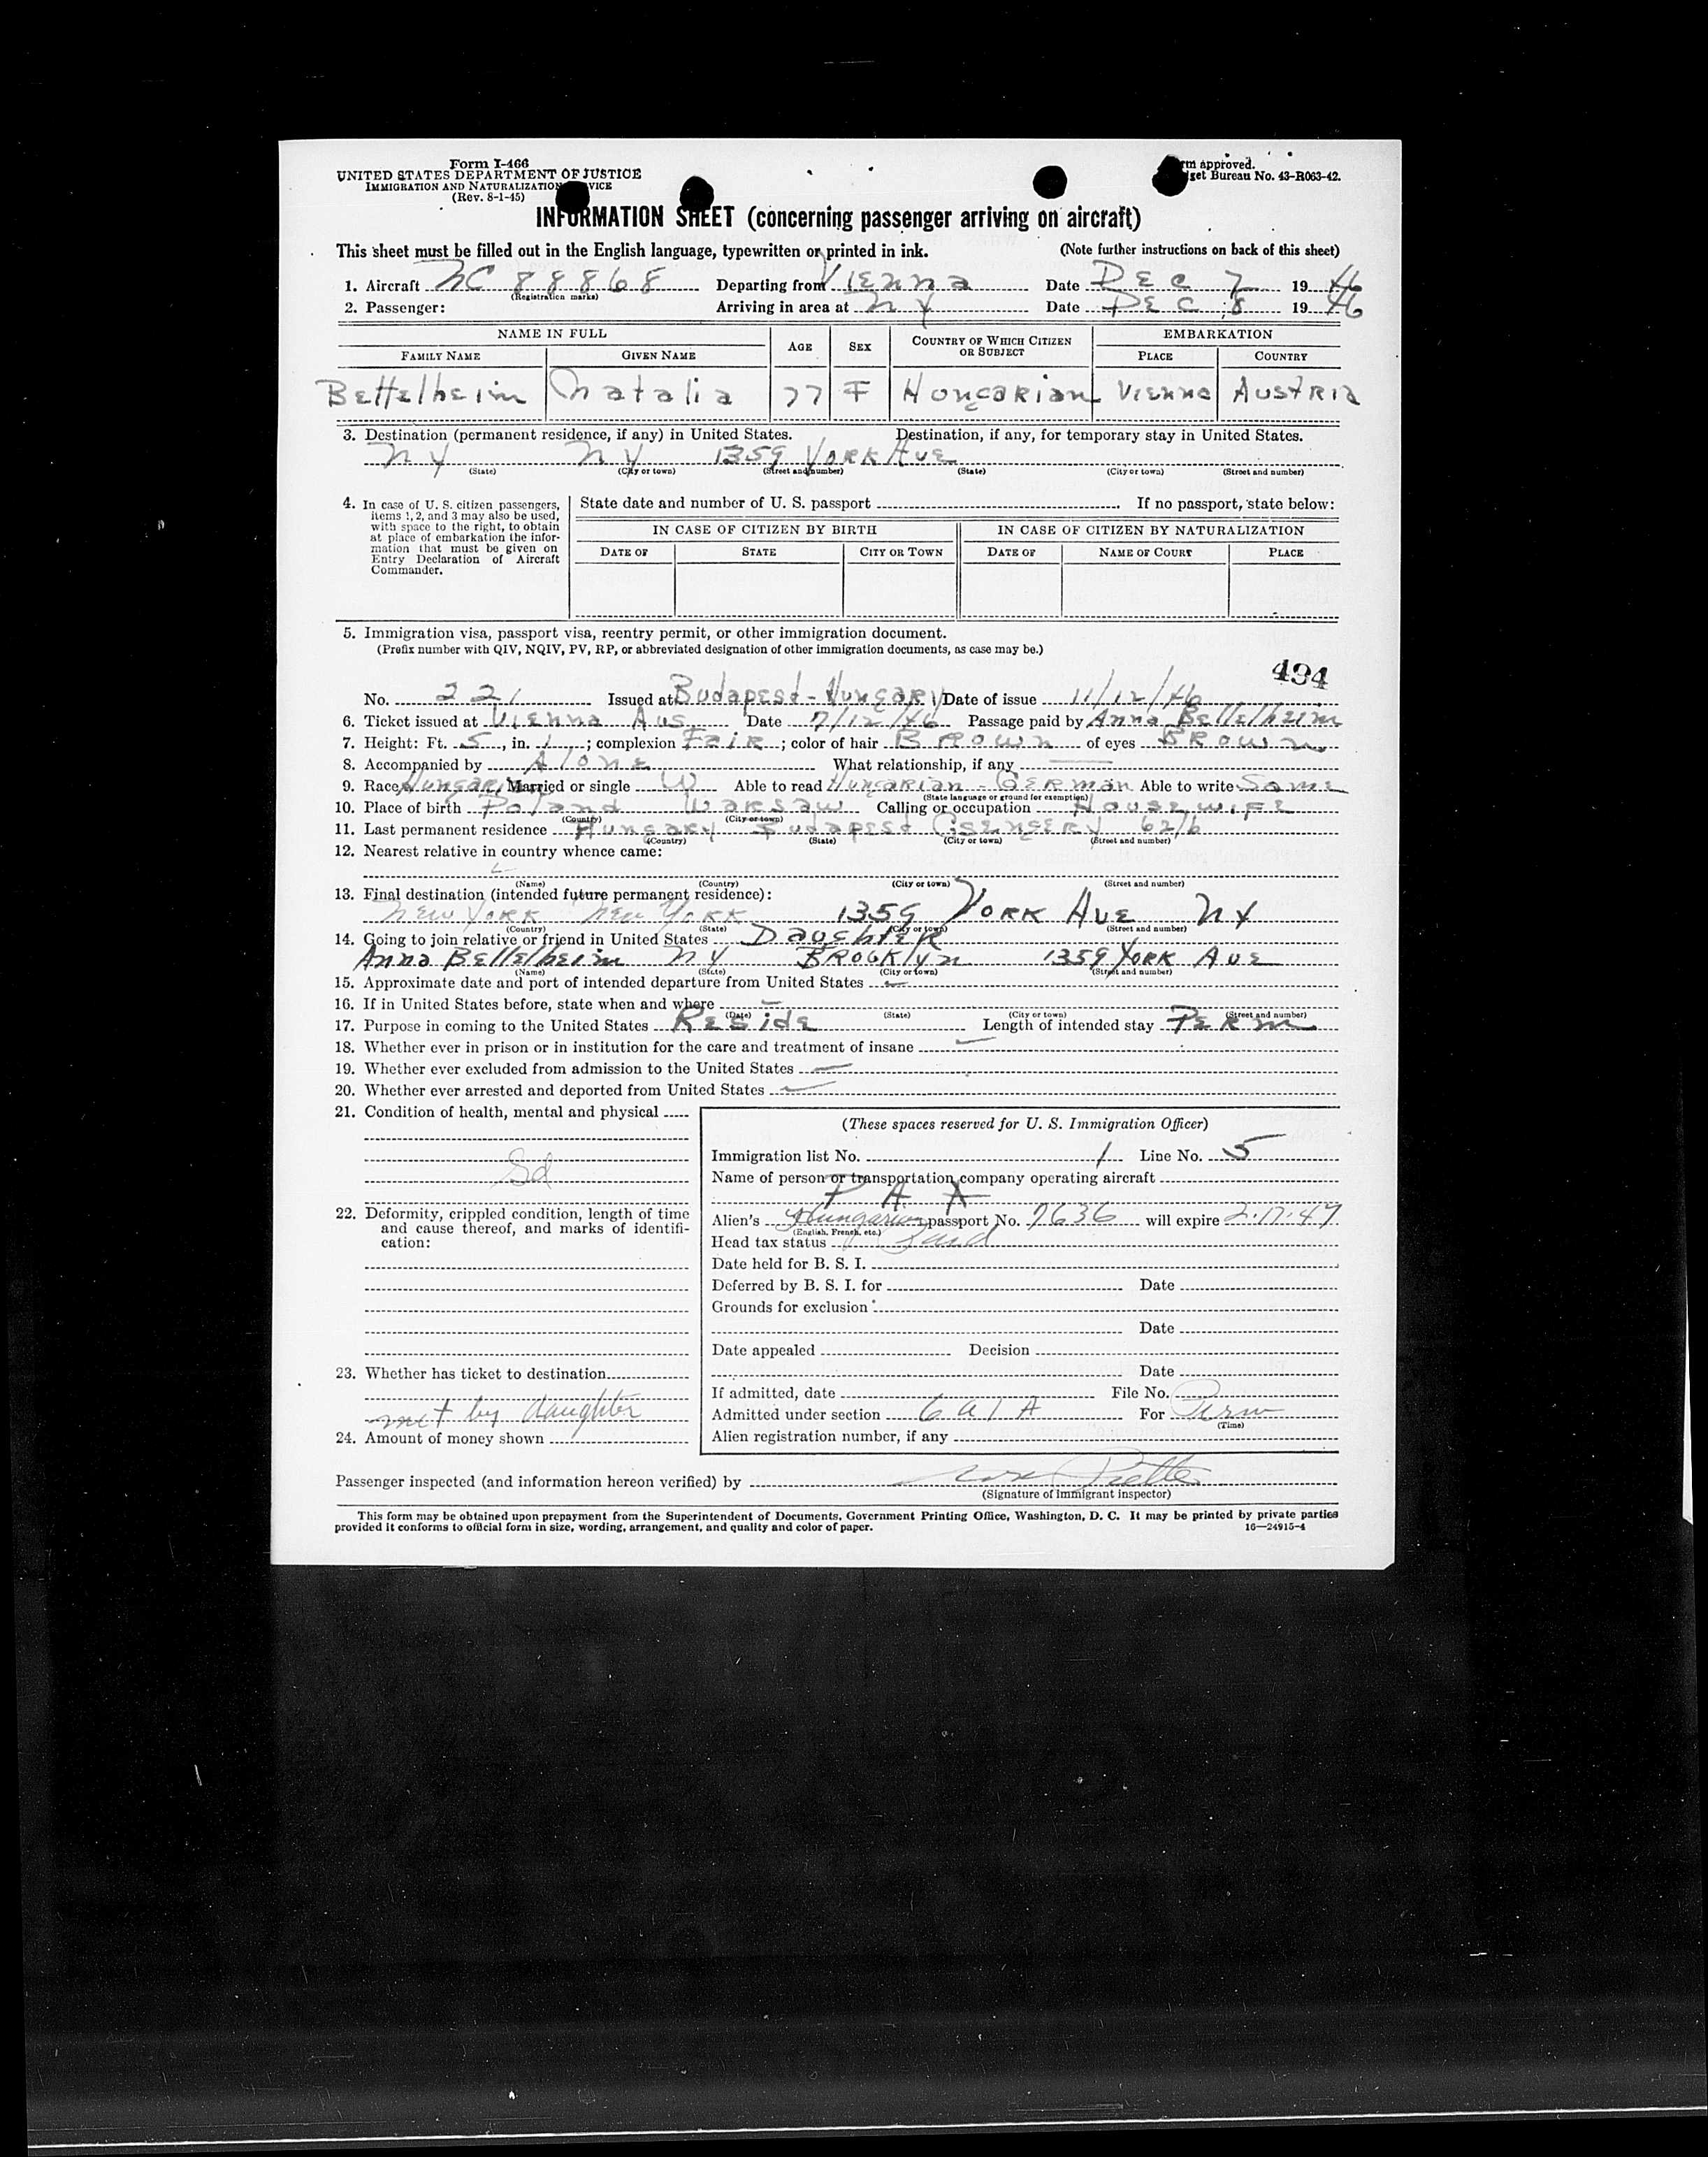 Form I-466
UNITED STATES DEPARTMENT OF JUSTICE
IMMIGRATION AND NATURALIZATION VICE
(Rev. 8-1-45)
rm approved.
get Bureau No. 43-R063-42.
INFORMATION SHEET (concerning passenger arriving on aircraft)
This sheet must be filled out in the English language, typewritten or printed in ink. (Note further instructions on back of this sheet)
1. Aircraft NC 88868 Departing from Vienna Date DEC 7 1946
(Registration marks)
2. Passenger: Arriving in area at NY Date DEC 8 1946
NAME IN FULL AGE SEX COUNTRY OF WHICH CITIZEN OR SUBJECT EMBARKATION
FAMILY NAME GIVEN NAME PLACE COUNTRY
Bettelheim Natalia 77 F Hungarian Vienna Austria
3. Destination (permanent residence, if any) in United States. Destination, if any, for temporary stay in United States.
NY NY 1359 York Ave
(State) (City or town) (Street and number) (State) (City or town) (Street and number)
4. In case of U. S. citizen passengers, items 1, 2, and 3 may also be used, with space to the right, to obtain at place of embarkation the information that must be given on Entry Declaration of Aircraft Commander.
State date and number of U. S. passport If no passport, state below:
IN CASE OF CITIZEN BY BIRTH IN CASE OF CITIZEN BY NATURALIZATION
DATE OF STATE CITY OR TOWN DATE OF NAME OF COURT PLACE
5. Immigration visa, passport visa, reentry permit, or other immigration document.
(Prefix number with QIV, NQIV, PV, RP, or abbreviated designation of other immigration documents, as case may be.)
494
No. 221 Issued at Budapest-Hungary Date of issue 11/12/46
6. Ticket issued at Vienna Aus Date 7/12/46 Passage paid by Anna Bettelheim
7. Height: Ft. 5, in. 1; complexion Fair; color of hair Brown of eyes Brown
8. Accompanied by Alone What relationship, if any —
9. Race Hungari Married or single W Able to read Hungarian - German Able to write Same
(State language or ground for exemption)
10. Place of birth Poland Warsaw Calling or occupation Housewife
(Country) (City or town)
11. Last permanent residence Hungary Budapest Csengery 62/b
(Country) (State) (City or town) (Street and number)
12. Nearest relative in country whence came:
(Name) (Country) (City or town) (Street and number)
13. Final destination (intended future permanent residence):
New York New York 1359 York Ave NY
(Country) (State) (City or town) (Street and number)
14. Going to join relative or friend in United States Daughter
Anna Bettelheim NY Brooklyn 1359 York Ave
(Name) (State) (City or town) (Street and number)
15. Approximate date and port of intended departure from United States —
16. If in United States before, state when and where —
(Date) (State) (City or town) (Street and number)
17. Purpose in coming to the United States Reside Length of intended stay Perm
18. Whether ever in prison or in institution for the care and treatment of insane —
19. Whether ever excluded from admission to the United States —
20. Whether ever arrested and deported from United States —
21. Condition of health, mental and physical
Gd
22. Deformity, crippled condition, length of time and cause thereof, and marks of identification:
23. Whether has ticket to destination
met by daughter
24. Amount of money shown
(These spaces reserved for U. S. Immigration Officer)
Immigration list No. 1 Line No. 5
Name of person or transportation company operating aircraft
P A A
Alien's Hungarian passport No. 7636 will expire 2.17.47
(English, French, etc.)
Head tax status Paid
Date held for B. S. I.
Deferred by B. S. I. for Date
Grounds for exclusion
Date
Date appealed Decision
Date
If admitted, date File No.
Admitted under section 6 a 1 A For Perm
(Time)
Alien registration number, if any
Passenger inspected (and information hereon verified) by
(Signature of immigrant inspector)
This form may be obtained upon prepayment from the Superintendent of Documents, Government Printing Office, Washington, D. C. It may be printed by private parties
provided it conforms to official form in size, wording, arrangement, and quality and color of paper. 16—24915-4